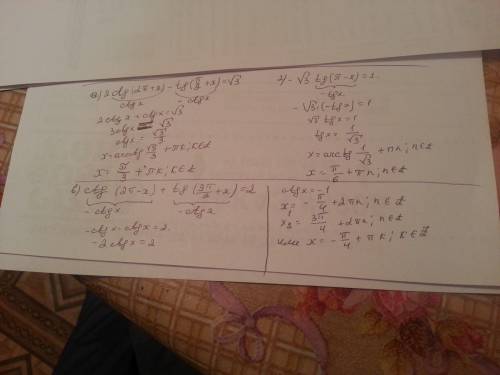 а) 2ctg(2π+x) - tg(π/2+x)=√3
ctgx - ctgx
2ctgx + ctgx=√3
3ctgx = √3
ctgx = √3/3
x=arcctg √3/3 +πk; k∈Z
x = π/3 + πk; k∈Z
г) -√3 tg(π-x)=1.
-tgx
-√3·(-tgx)=1
√3 tgx=1
tgx= 1/√3
x=arctg 1/√3 + πn; n∈Z
x= π/6 + πn; n∈Z
в) ctg (2π-x) + tg(3π/2+x)=2
-ctgx -ctgx
-ctgx-ctgx=2.
-2ctgx=2
ctgx=-1
x₁= -π/4 +2πn; n∈Z
x₂= 3π/4 +2πn; n∈Z
или x= -π/4 + πk; k∈Z